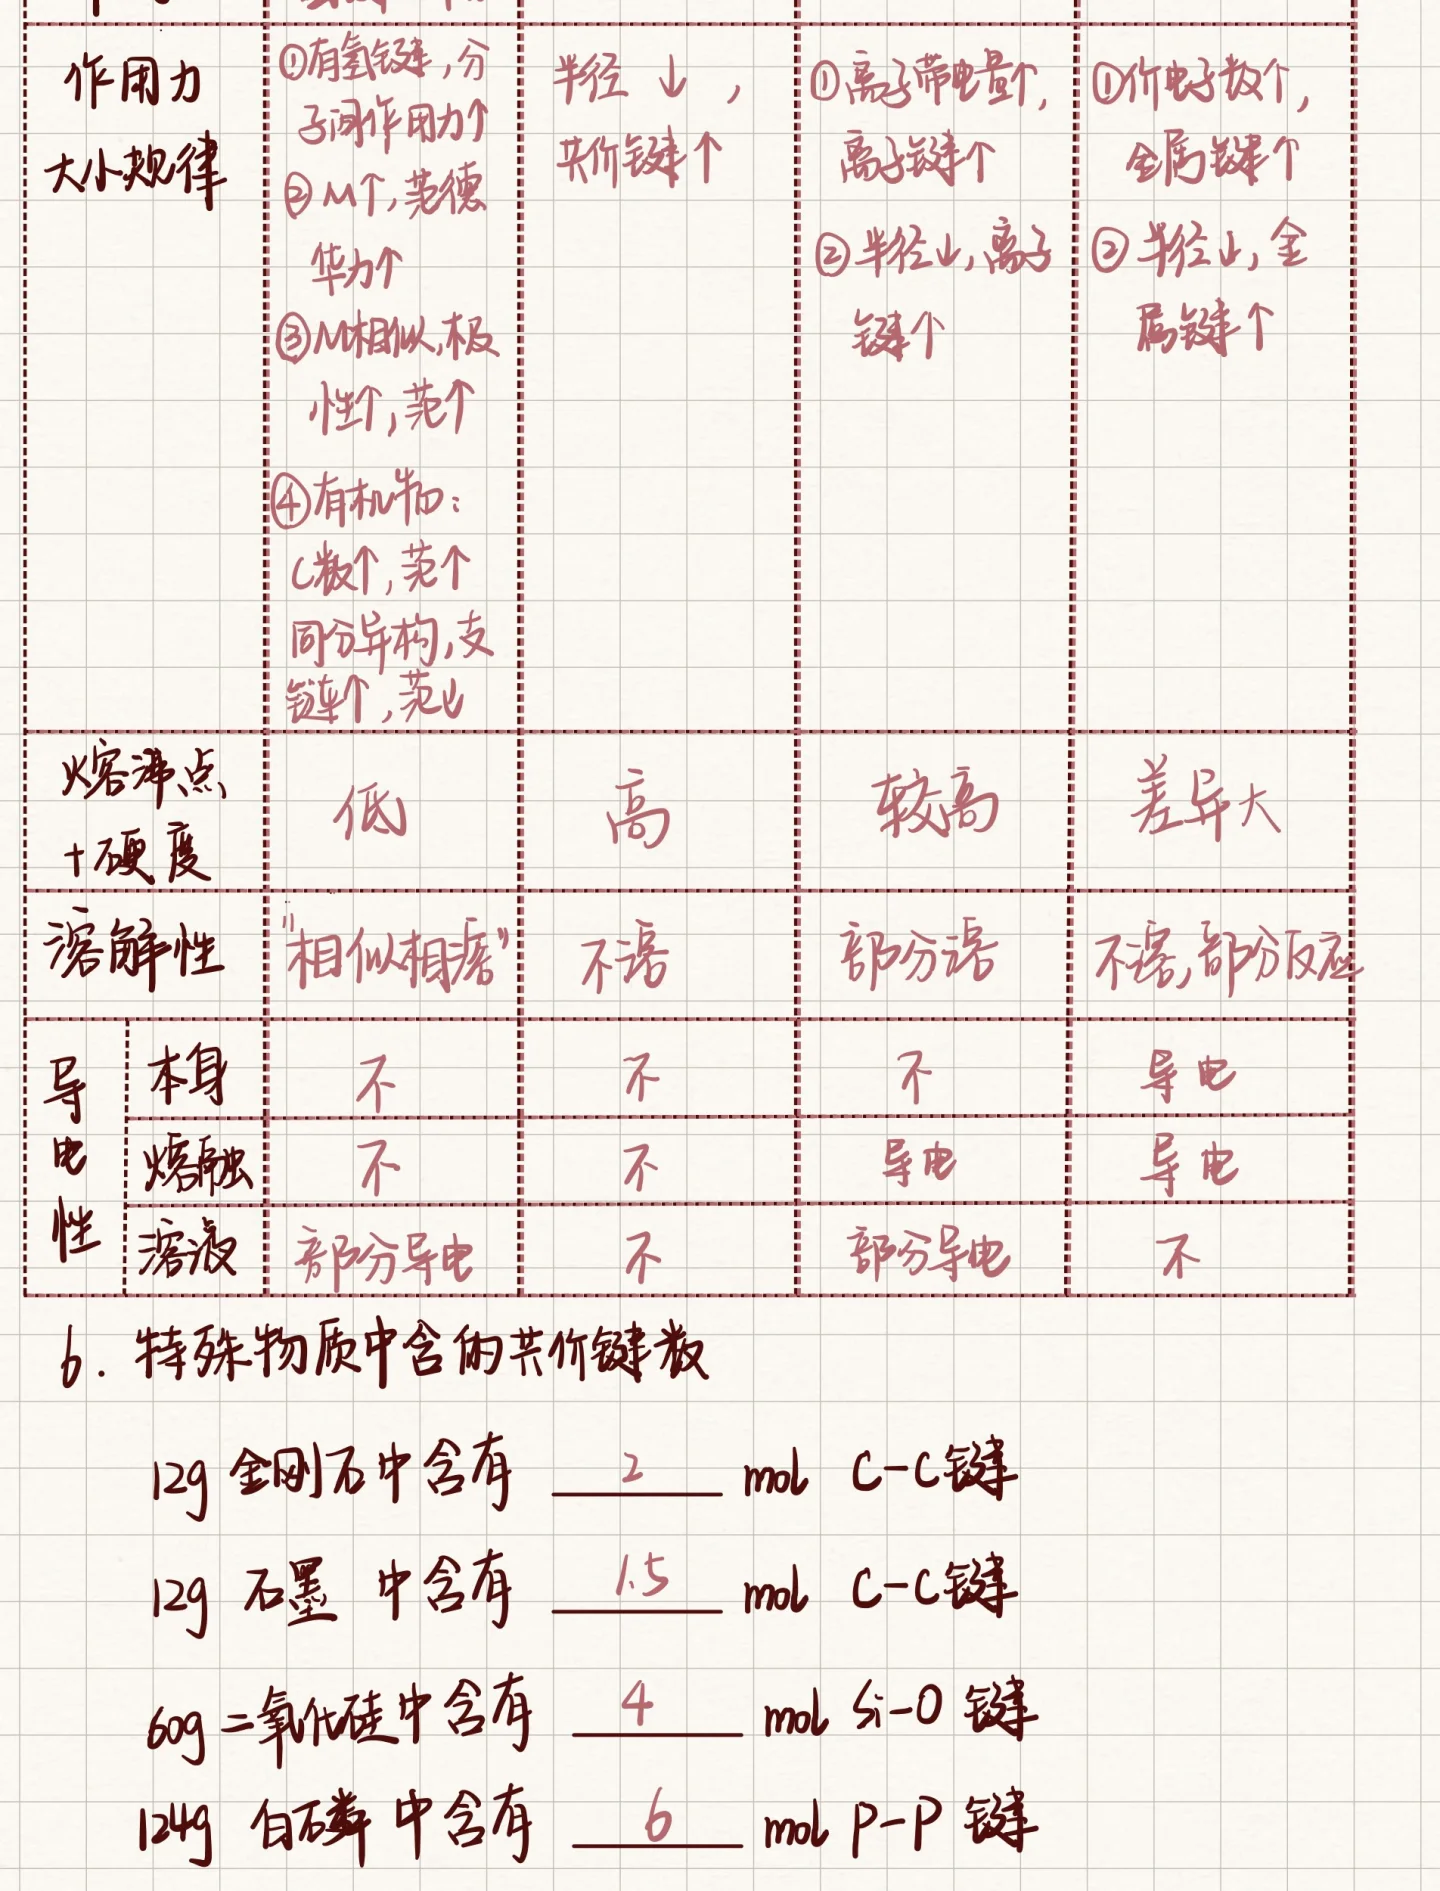 作用力
大小规律
①有氢键,分
子间作用力↑
②M↑,范德
华力↑
③M相似,极
性↑,范↑
④有机物:
C数↑,范↑
同分异构,支
链↑,范↓
半径↓,
共价键↑
①离子带电量↑,
离子键↑
②半径↓,离子
键↑
①价电子数↑,
金属键↑
②半径↓,金
属键↑
熔沸点
+硬度
低
高
较高
差异大
溶解性
"相似相溶"
不溶
部分溶
不溶,部分反应
导
电
性
本身
不
不
不
导电
熔融
不
不
导电
导电
溶液
部分导电
不
部分导电
不
6. 特殊物质中含的共价键数
12g 金刚石中含有 2 mol C-C键
12g 石墨 中含有 1.5 mol C-C键
60g 二氧化硅中含有 4 mol Si-O 键
124g 白磷 中含有 6 mol P-P 键